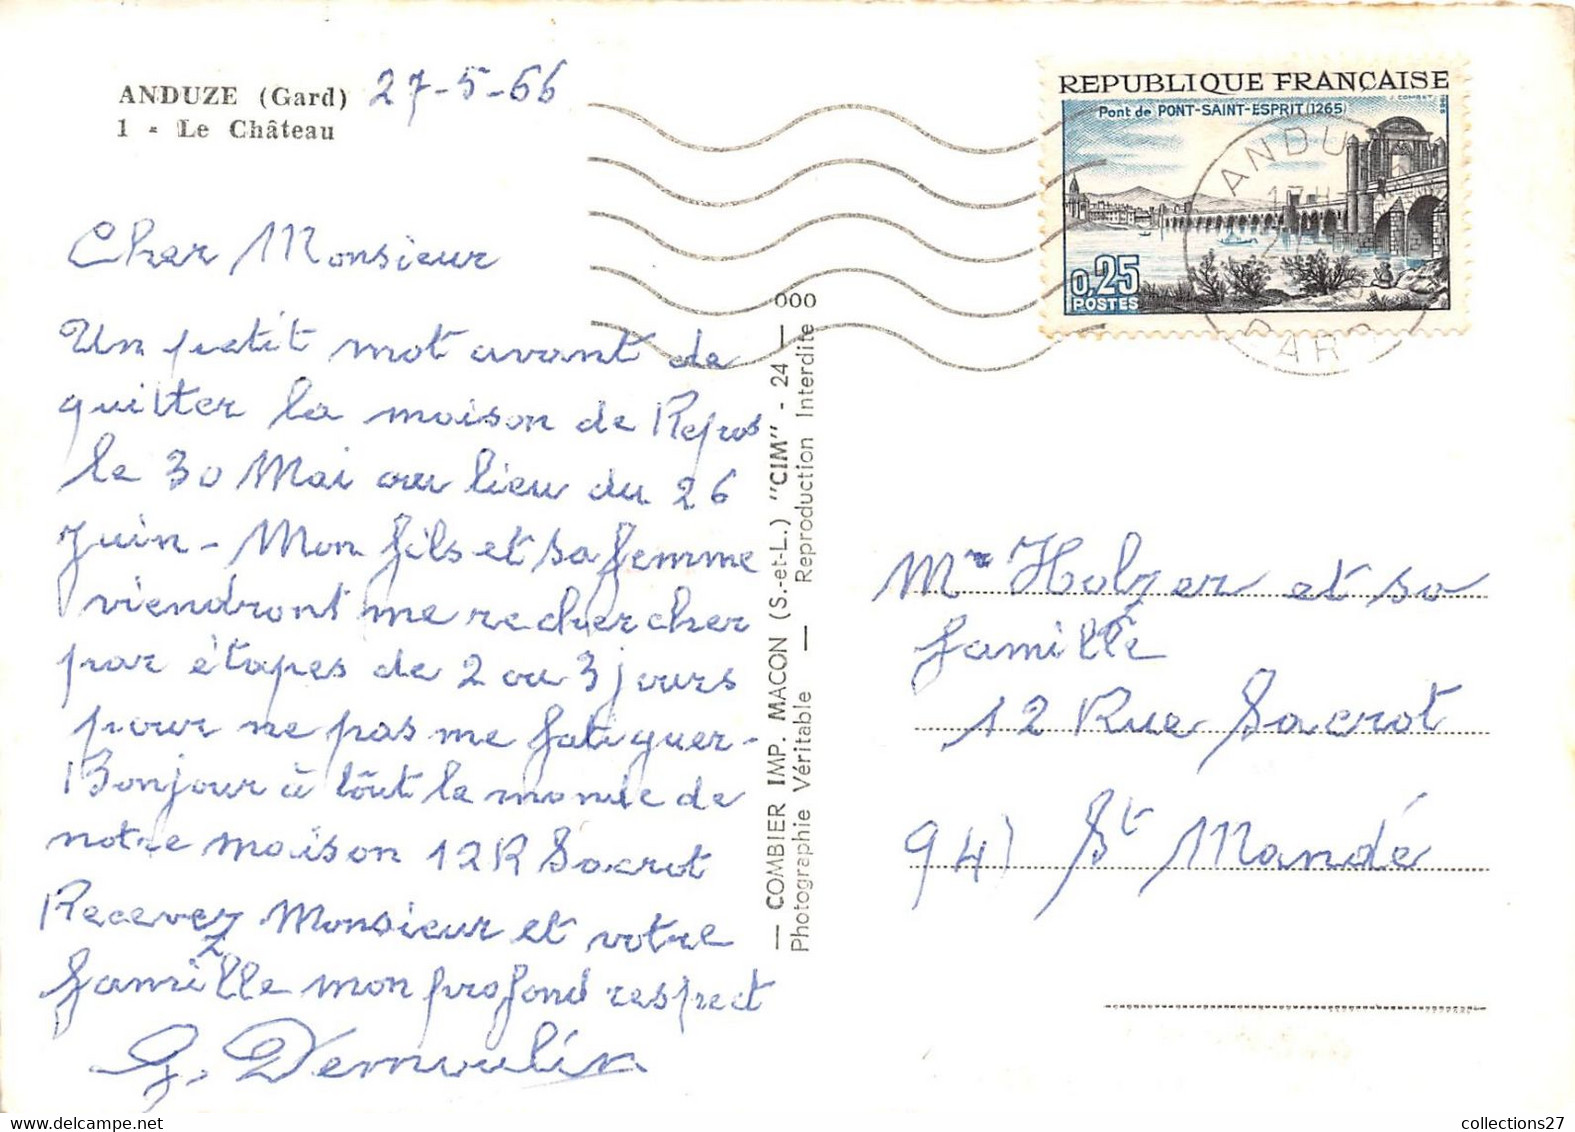 ANDUZE (Gard) 27-5-66
1 - Le Château
REPUBLIQUE FRANÇAISE
J. COMBET
Pont de PONT-SAINT-ESPRIT (1265)
0,25
POSTES
ANDUZE
GARD
Cher Monsieur
Un petit mot avant de
quitter la maison de Repos
le 30 Mai au lieu du 26
Juin - Mon fils et sa femme
viendront me rechercher
par étapes de 2 ou 3 jours
pour ne pas me fatiguer -
Bonjour à tout le monde de
notre maison 12 R Sacrot
Recevez Monsieur et votre
famille mon profond respect
G. Demoulin
— COMBIER IMP. MACON (S.-et-L.) "CIM" - 24 — 000
Photographie Véritable — Reproduction Interdite
Mr Holzer et sa
famille
12 Rue Sacrot
94) St Mandé
collections27